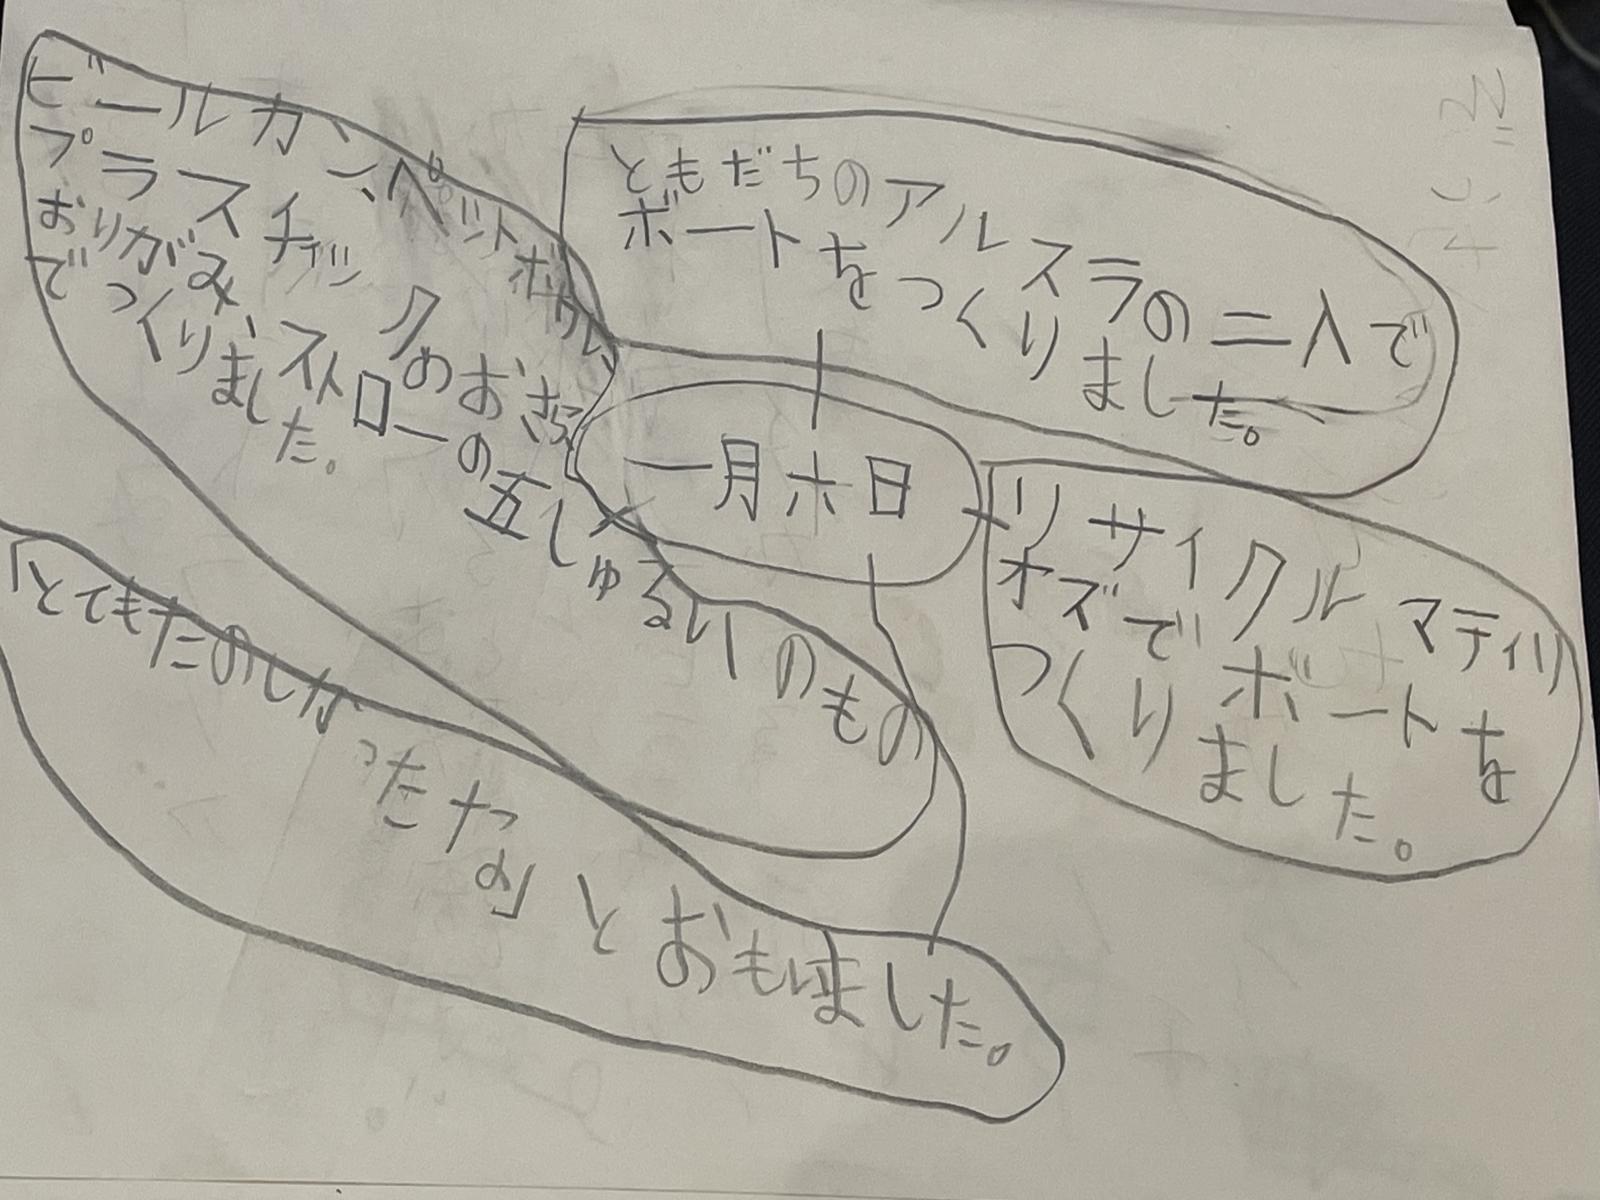 一月六日
ともだちのアルスラの二人で
ボートをつくりました。
リサイクルマティリ
オズでボートを
つくりました。
ビールカン、ペットボウル、
プラスチィックのおさら
おりがみ、ストローの五しゅるいのもの
でつくりました。
「とてもたのしかったなぁ」とおもいました。